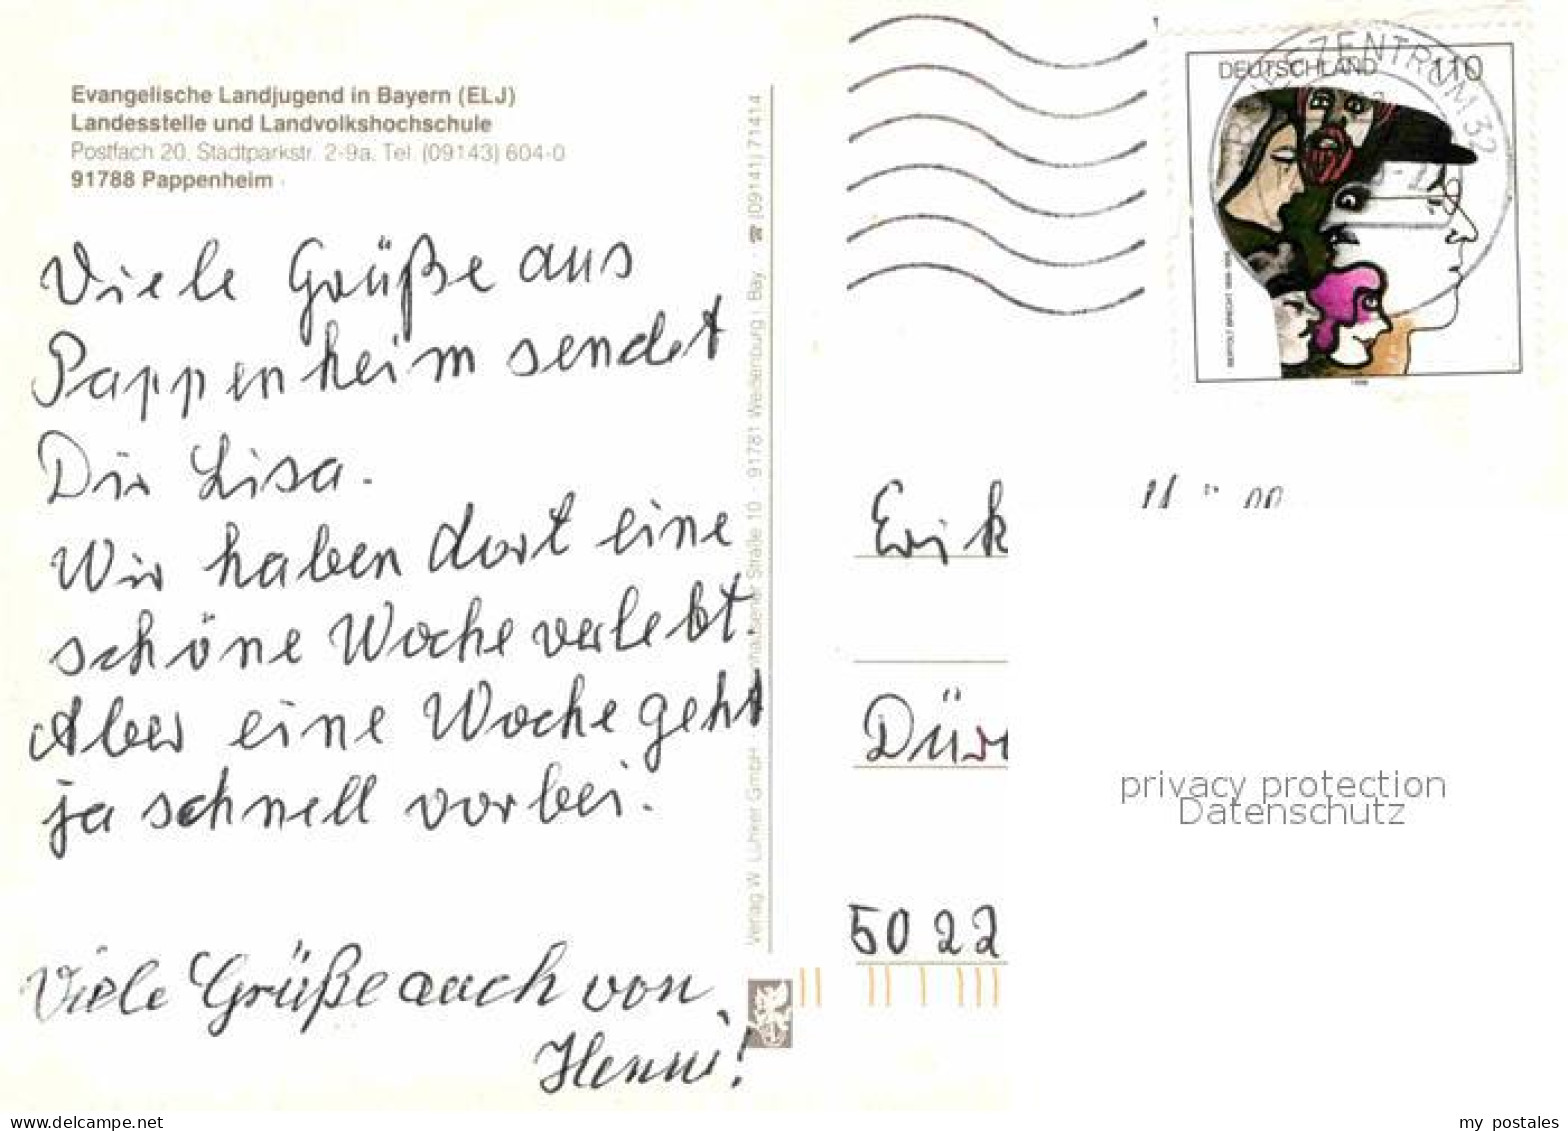 Evangelische Landjugend in Bayern (ELJ)
Landesstelle und Landvolkshochschule
Postfach 20, Stadtparkstr. 2-9a, Tel. (09143) 604-0
91788 Pappenheim
Viele Grüße aus
Pappenheim sendet
Dir Lisa.
Wir haben dort eine
schöne Woche verlebt.
Aber eine Woche geht
ja schnell vorbei.
Viele Grüße auch von
Henni!
Verlag W. Lühker GmbH Straße 10 · 91781 Weißenburg i. Bay. · ☎ (09141) 71414
DEUTSCHLAND 110
BERTOLT BRECHT 1898-1956
1998
ZENTRUM 32
Erik
Dür
5022
privacy protection
Datenschutz
delcampe.net
my_postales